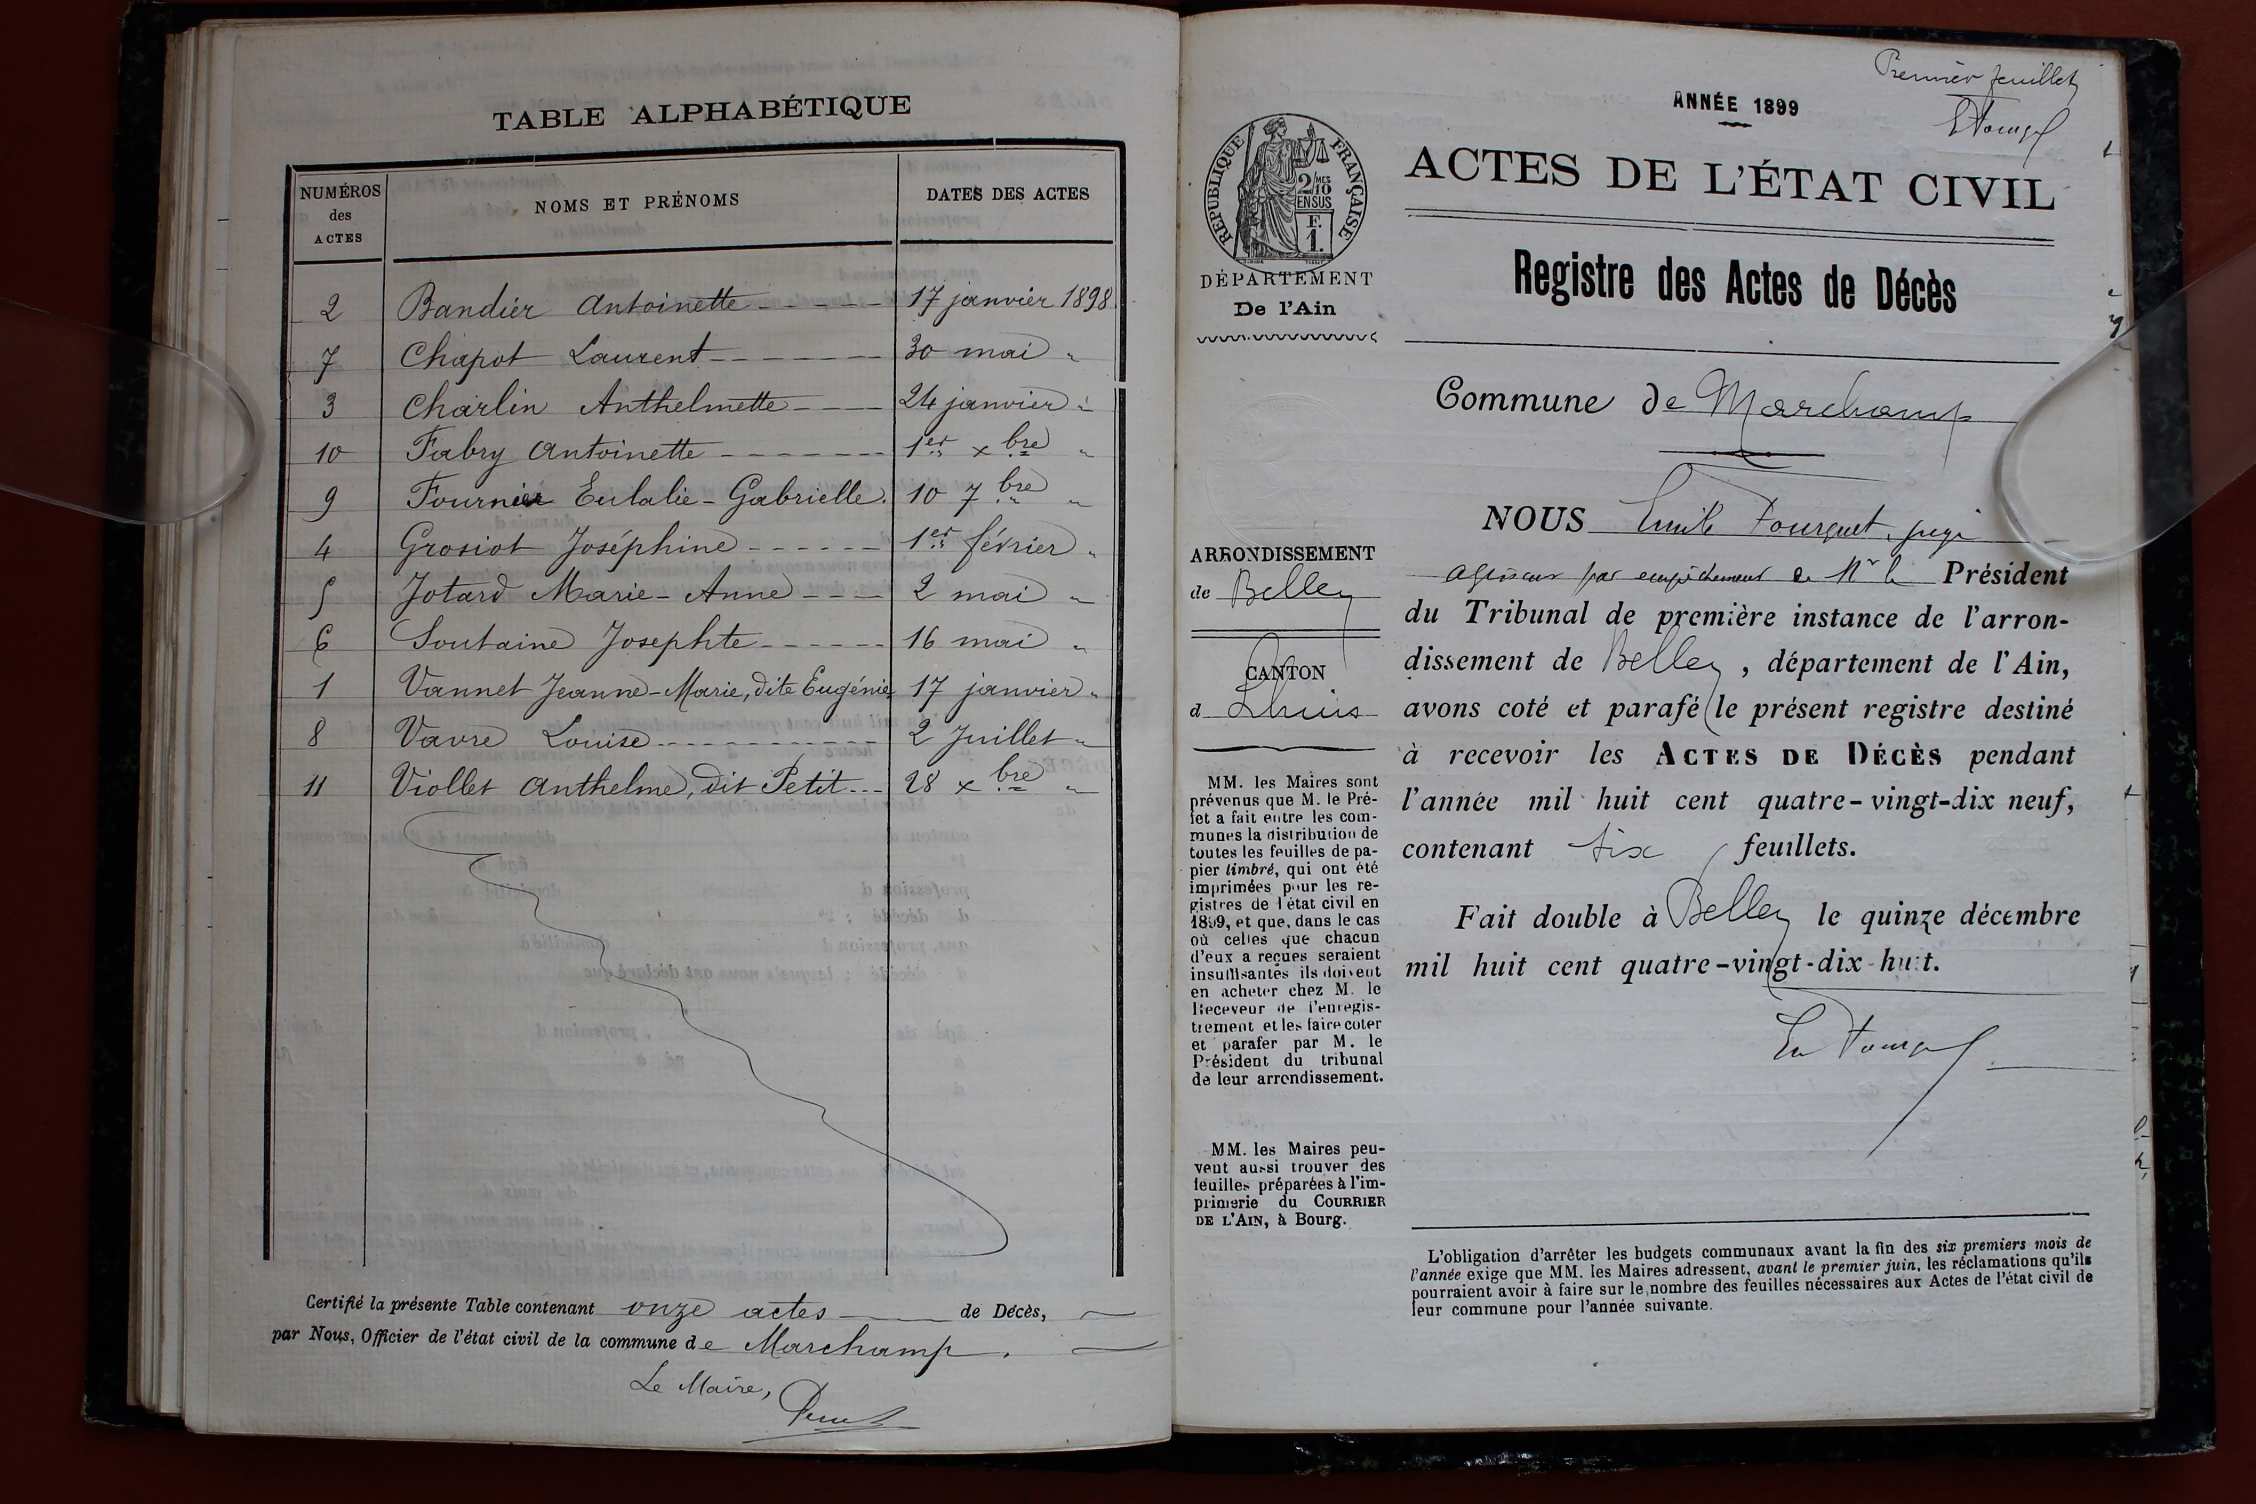 TABLE ALPHABÉTIQUE
NUMÉROS des ACTES
NOMS ET PRÉNOMS
DATES DES ACTES
2 Bandier Antoinette 17 janvier 1898
7 Chapot Laurent 30 mai "
3 Charlin Anthelmette 24 janvier "
10 Fabry Antoinette 1er xbre "
9 Fournier Eulalie-Gabrielle. 10 7bre "
4 Grosiot Joséphine 1er février "
5 Jotard Marie-Anne 2 mai "
6 Soutaine Josephte 16 mai "
1 Vannet Jeanne-Marie, dite Eugénie 17 janvier "
8 Vavre Louise 2 Juillet "
11 Viollet Anthelme, dit Petit 28 xbre "
Certifié la présente Table contenant onze actes de Décès,
par Nous, Officier de l'état civil de la commune de Marchamp.
Le Maire,
Premier feuillet
ANNÉE 1899
RÉPUBLIQUE FRANÇAISE
2/10 MES
EN SUS
F. 1.
DÉPARTEMENT
De l'Ain
ARRONDISSEMENT
de Belley
CANTON
d Lhuis
MM. les Maires sont
prévenus que M. le Pré-
fet a fait entre les com-
munes la distribution de
toutes les feuilles de pa-
pier timbré, qui ont été
imprimées pour les re-
gistres de l'état civil en
1899, et que, dans le cas
où celles que chacun
d'eux a reçues seraient
insuffisantes ils doivent
en acheter chez M. le
Receveur de l'enregis-
trement et les faire coter
et parafer par M. le
Président du tribunal
de leur arrondissement.
MM. les Maires peu-
vent aussi trouver des
feuilles préparées à l'im-
primerie du COURRIER
DE L'AIN, à Bourg.
ACTES DE L'ÉTAT CIVIL
Registre des Actes de Décès
Commune de Marchamp
NOUS Emile Fourquet, juge
par empêchement de Mr le Président
du Tribunal de première instance de l'arron-
dissement de Belley, département de l'Ain,
avons coté et parafé le présent registre destiné
à recevoir les ACTES DE DÉCÈS pendant
l'année mil huit cent quatre-vingt-dix neuf,
contenant six feuillets.
Fait double à Belley le quinze décembre
mil huit cent quatre-vingt-dix-huit.
L'obligation d'arrêter les budgets communaux avant la fin des six premiers mois de
l'année exige que MM. les Maires adressent, avant le premier juin, les réclamations qu'ils
pourraient avoir à faire sur le nombre des feuilles nécessaires aux Actes de l'état civil de
leur commune pour l'année suivante.